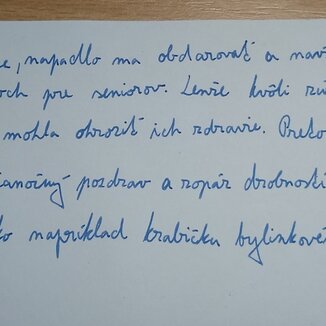 e, napadlo ma obdarovať a nav
och pre seniorov. Lenže kvôli rú
mohla ohroziť ich zdravie. Preto
ianočný pozdrav a zopár drobností
ko napríklad krabičku bylinkové